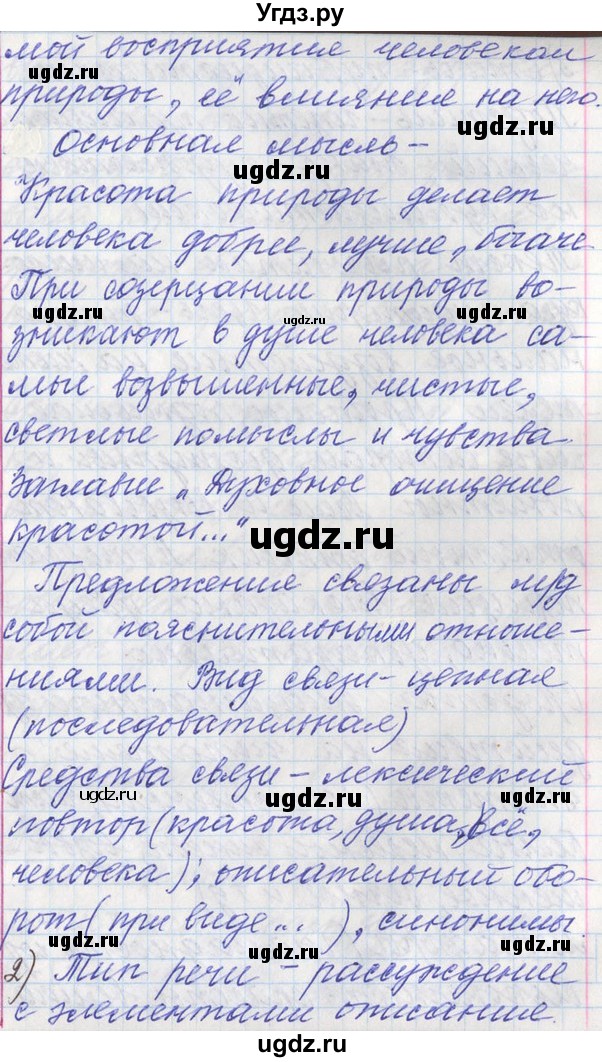 Угдз.ру
мой восприятие человеком
ugdz.ru ugdz.ru
природы, её влияние на него.
ugdz.ru
Основная мысль –
Красота природы делает
человека добрее, лучше, богаче
При созерцании природы во-
ugdz.ru ugdz.ru ugdz.ru
зникают в душе человека са-
мые возвышенные, чистые,
светлые помыслы и чувства.
Заглавие „Духовное очищение
красотой..."
ugdz.ru ugdz.ru
Предложения связаны м/д
собой пояснительными отноше-
ниями. Вид связи - цепная
(последовательная)
Средства связи – лексический
ugdz.ru ugdz.ru
повтор (красота, душа, всё,
человека); описательный обо-
рот (при виде...), синонимы.
ugdz.ru ugdz.ru
2) Тип речи – рассуждение
с элементами описания.
ugdz.ru